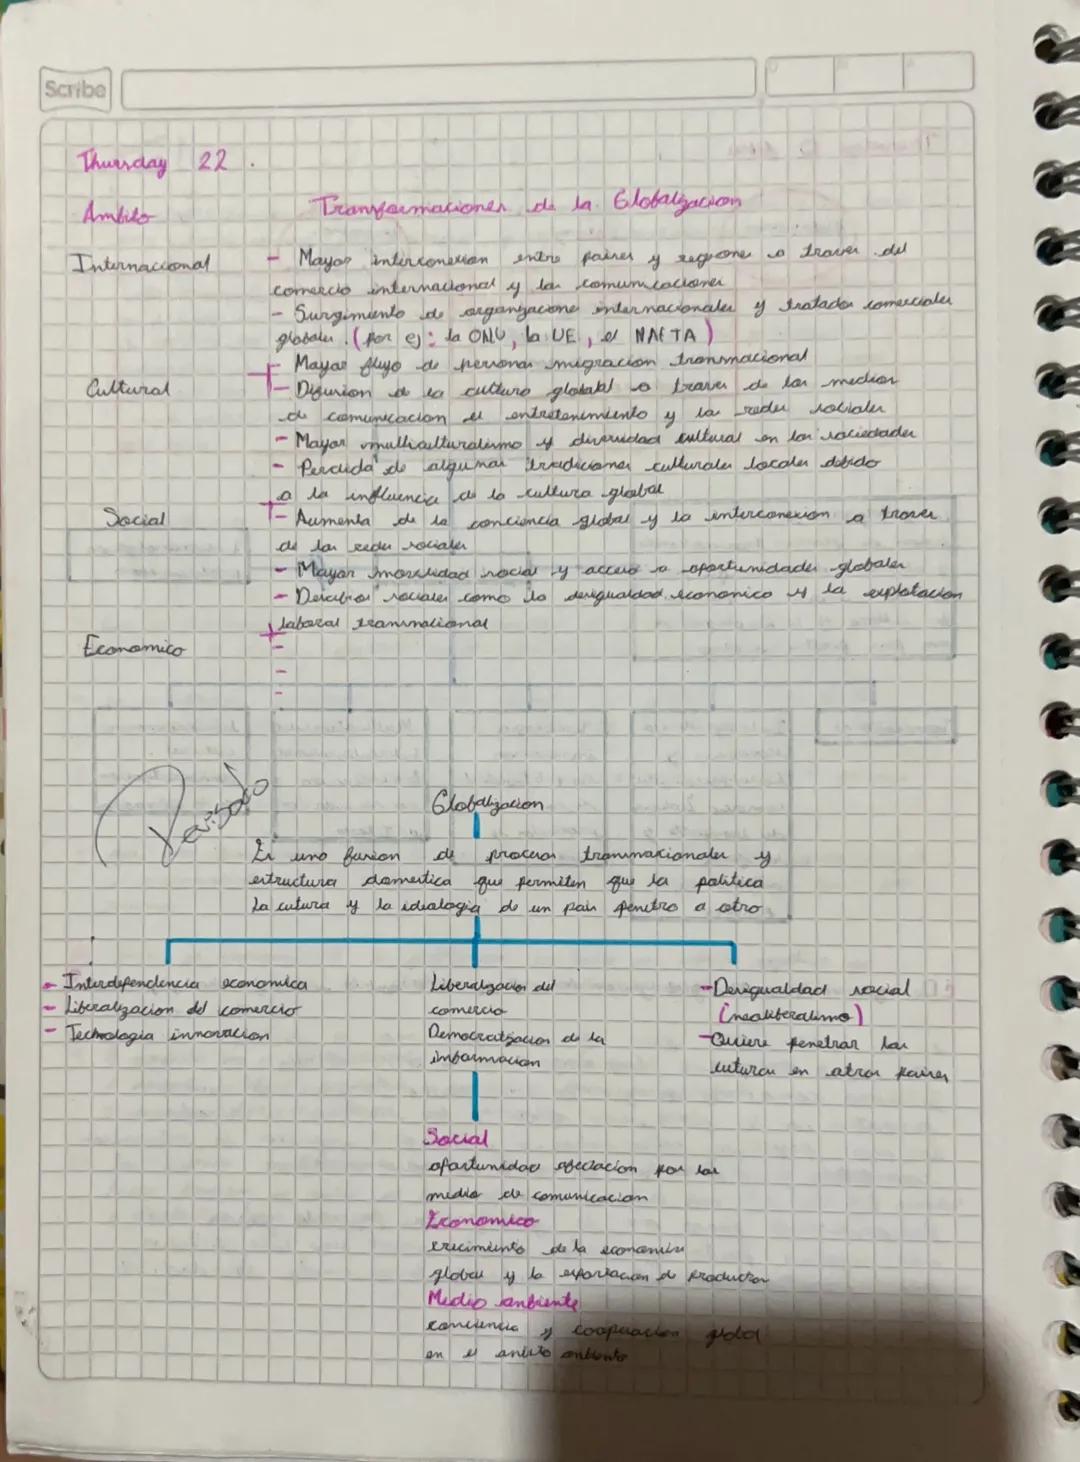 Scribe
Thursday 22.
Ambito
Transformaciones de la Globalizacion
Internacional
- Mayor interconexion entre paises y regiones a traves del
comercio internacional y las comunicaciones
- Surgimiento de organizaciones internacionales y tratados comerciales
globales. (por ej: la ONU, la UE, el NAFTA)
- Mayor flujo de personas migracion transnacional
Cultural
- Difusion de la cultura global a traves de los medios
de comunicacion el entretenimiento y las redes sociales
- Mayor multiculturalismo y diversidad cultural en las sociedades
- Perdida de algunas tradiciones culturales locales debido
a la influencia de la cultura global
Social
- Aumenta de la conciencia global y la interconexion a traves
de las redes sociales
- Mayor movilidad social y acceso a oportunidades globales
- sociales como la desigualdad economico y la explotacion
laboral transnacional
Economico
-
-
-
Revisado
Globalizacion
Es una fusion de procesos transnacionales y
estructura domestica que permiten que la politica
la cutura y la idealogia de un pais penetre a otro
- Interdependencia economica
- Liberalizacion del comercio
- Technologia innovacion
Liberalizacion del
comercio
Democratizacion de la
informacion
- Desigualdad social
(neoliberalimo)
- Quiere penetrar las
cuturas en otros paises
Social
oportunidad afectacion por los
medio de comunicacion
Economico
crecimiento de la economia
global y la exportacion de productos
Medio ambiente
conciencia y cooperacion global
en el